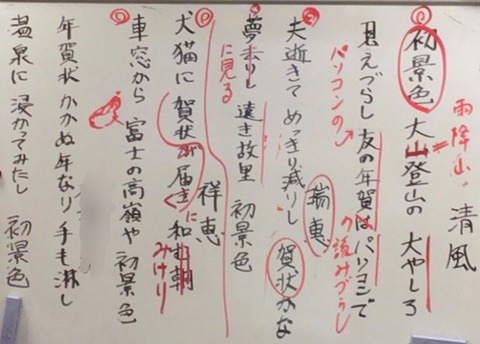 清風
雨降山
初景色 大山登山の 大やしろ
見えづらし 友の年賀はパソコンで
パソコンの
読みづらし
瑞恵
夫逝きて めっきり減りし 賀状かな
夢去りし 遠き故里 初景色
に見る
祥恵
犬猫に 賀状が届き 和む朝
みけり
車窓から 富士の高嶺や 初景色
年賀状 かかぬ年なり 手も淋し
温泉に 浸かってみたし 初景色